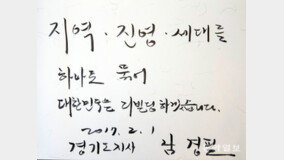 지역·진영·세대를
하나로 묶어
대한민국을 리빌딩하겠습니다.
2017. 2. 1
경기도지사 남경필